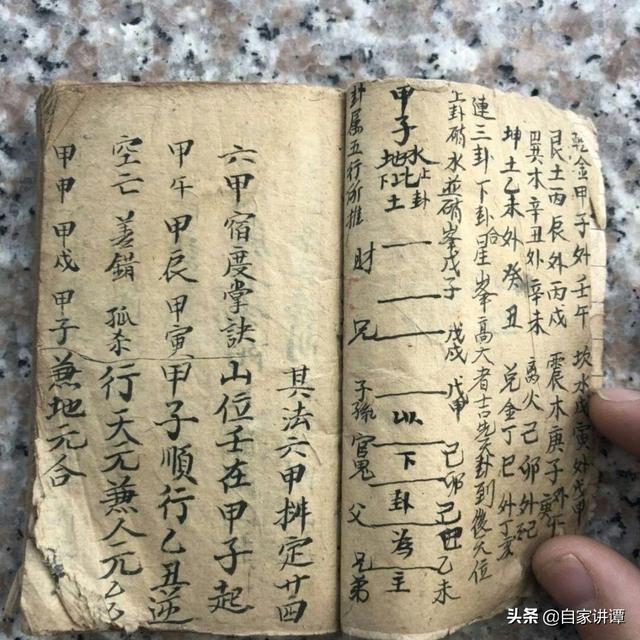 乾金甲子外壬午 坎水戊寅外戊申
艮土丙辰外丙戌 震木庚子外庚午
巽木辛丑外辛未 离火己卯外
坤土乙未外癸丑 兑金丁巳外丁亥
連三卦下卦合星峯高大者吉先天卦到後天位
上卦硝水並硝峯戊子 戊戌 戊申 己卯 己丑 乙未
甲子 水地比 上卦 下土 以下卦為主
卦属五行所推 財 兄 子孫 官鬼 父 兄弟
其法六甲掛定廿四
六甲宿度掌訣 山位壬在甲子起
甲午 甲辰 甲寅 甲子順行乙丑逆
空亡 善錯 孤杀 行天元兼人元乙
甲申 甲戌 甲子 兼地元合
头条 @自家讲谭